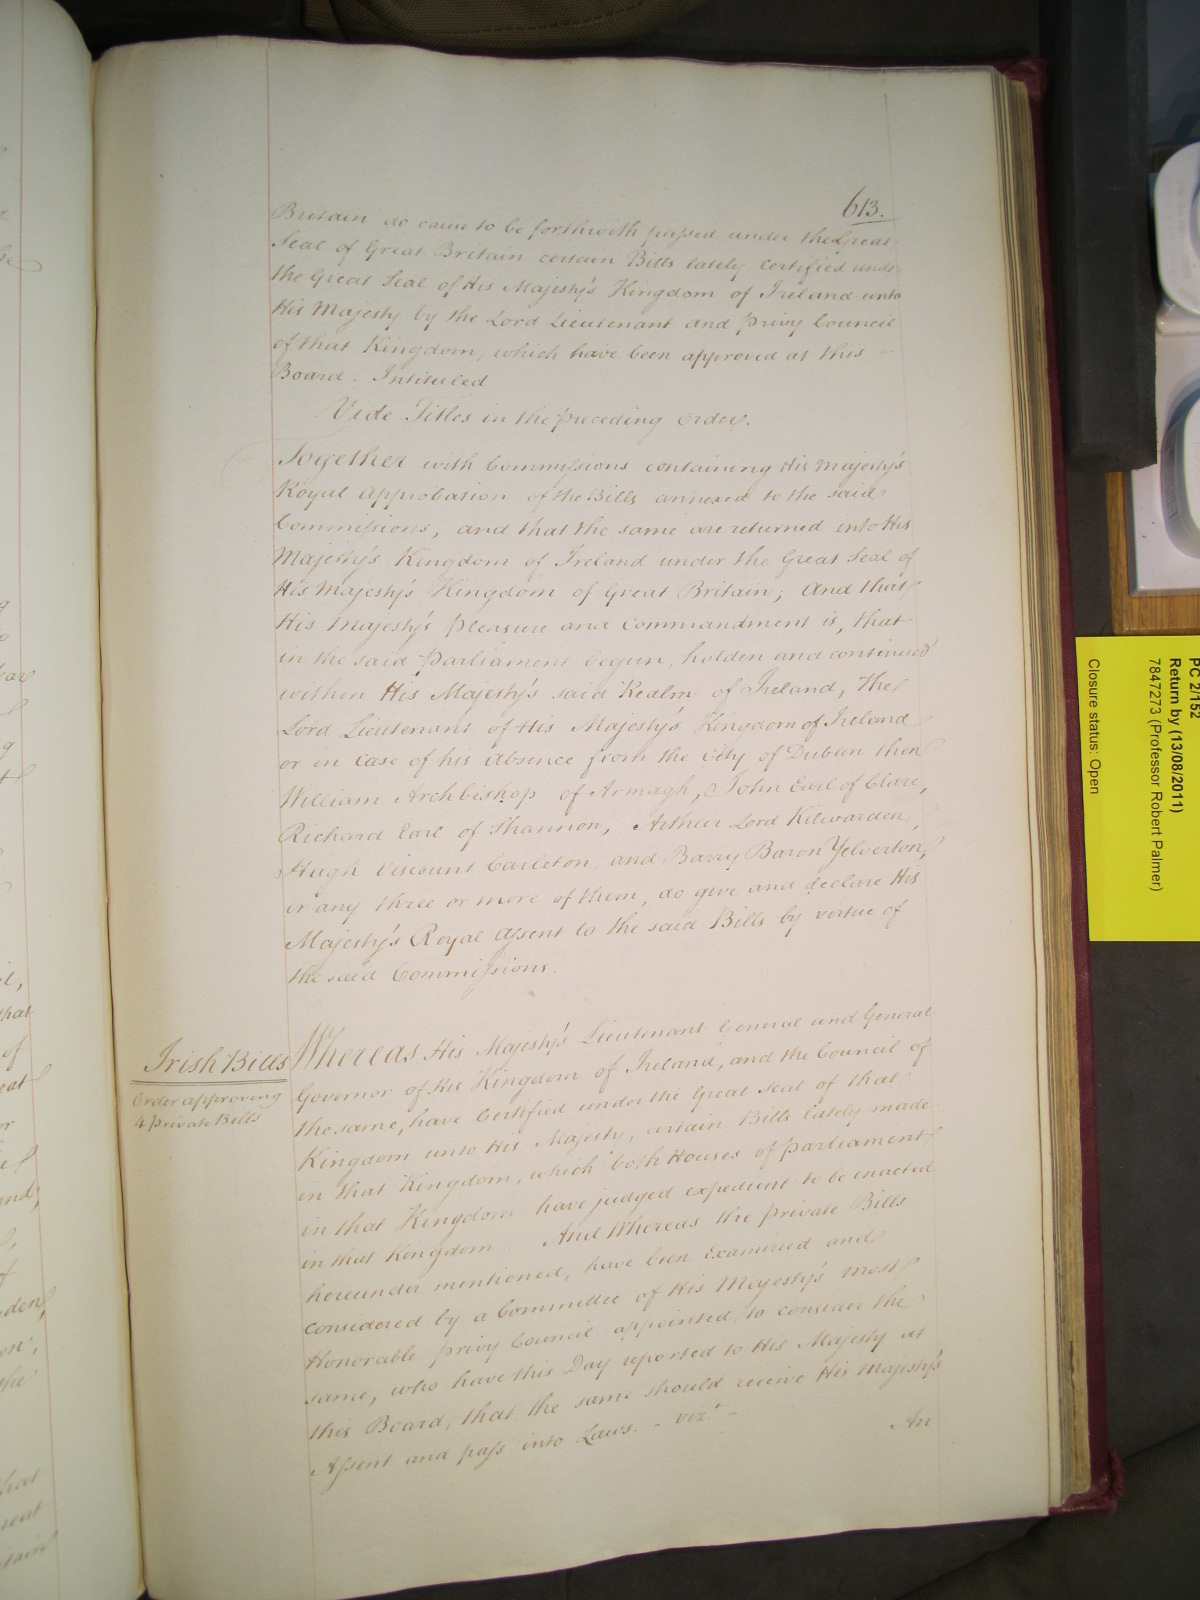 613.
Britain do cause to be forthwith passed under the Great
Seal of Great Britain certain Bills lately certified under
the Great Seal of His Majesty's Kingdom of Ireland unto
His Majesty by the Lord Lieutenant and Privy Council
of that Kingdom, which have been approved at this
Board. Intituled
Vide Titles in the preceding Order.
Together with Commissions containing His Majesty's
Royal Approbation of the Bills annexed to the said
Commissions, and that the same are returned into His
Majesty's Kingdom of Ireland under the Great Seal of
His Majesty's Kingdom of Great Britain; And that
His Majesty's Pleasure and Commandment is, that
in the said Parliament begun, holden and continued
within His Majesty's said Realm of Ireland, the
Lord Lieutenant of His Majesty's Kingdom of Ireland
or in Case of his Absence from the City of Dublin then
William Archbishop of Armagh, John Earl of Clare,
Richard Earl of Shannon, Arthur Lord Kilwarden,
Hugh Viscount Carleton and Barry Baron Yelverton,
or any three or more of them, do give and declare His
Majesty's Royal Assent to the said Bills by virtue of
the said Commissions.
Irish Bills
Order approving
4 Private Bills
Whereas His Majesty's Lieutenant General and General
Governor of His Kingdom of Ireland, and the Council of
the same, have Certified under the Great Seal of that
Kingdom unto His Majesty, certain Bills lately made
in that Kingdom, which both Houses of Parliament
in that Kingdom have judged expedient to be enacted
in that Kingdom: And Whereas the private Bills
hereunder mentioned, have been Examined and
considered by a Committee of His Majesty's most
Honorable Privy Council appointed to consider the
same, who have this Day reported to His Majesty at
this Board, that the same should receive His Majesty's
Assent and pass into Laws. - vizt. -
An
PC 2/152
Return by (13/08/2011)
7847273 (Professor Robert Palmer)
Closure status: Open